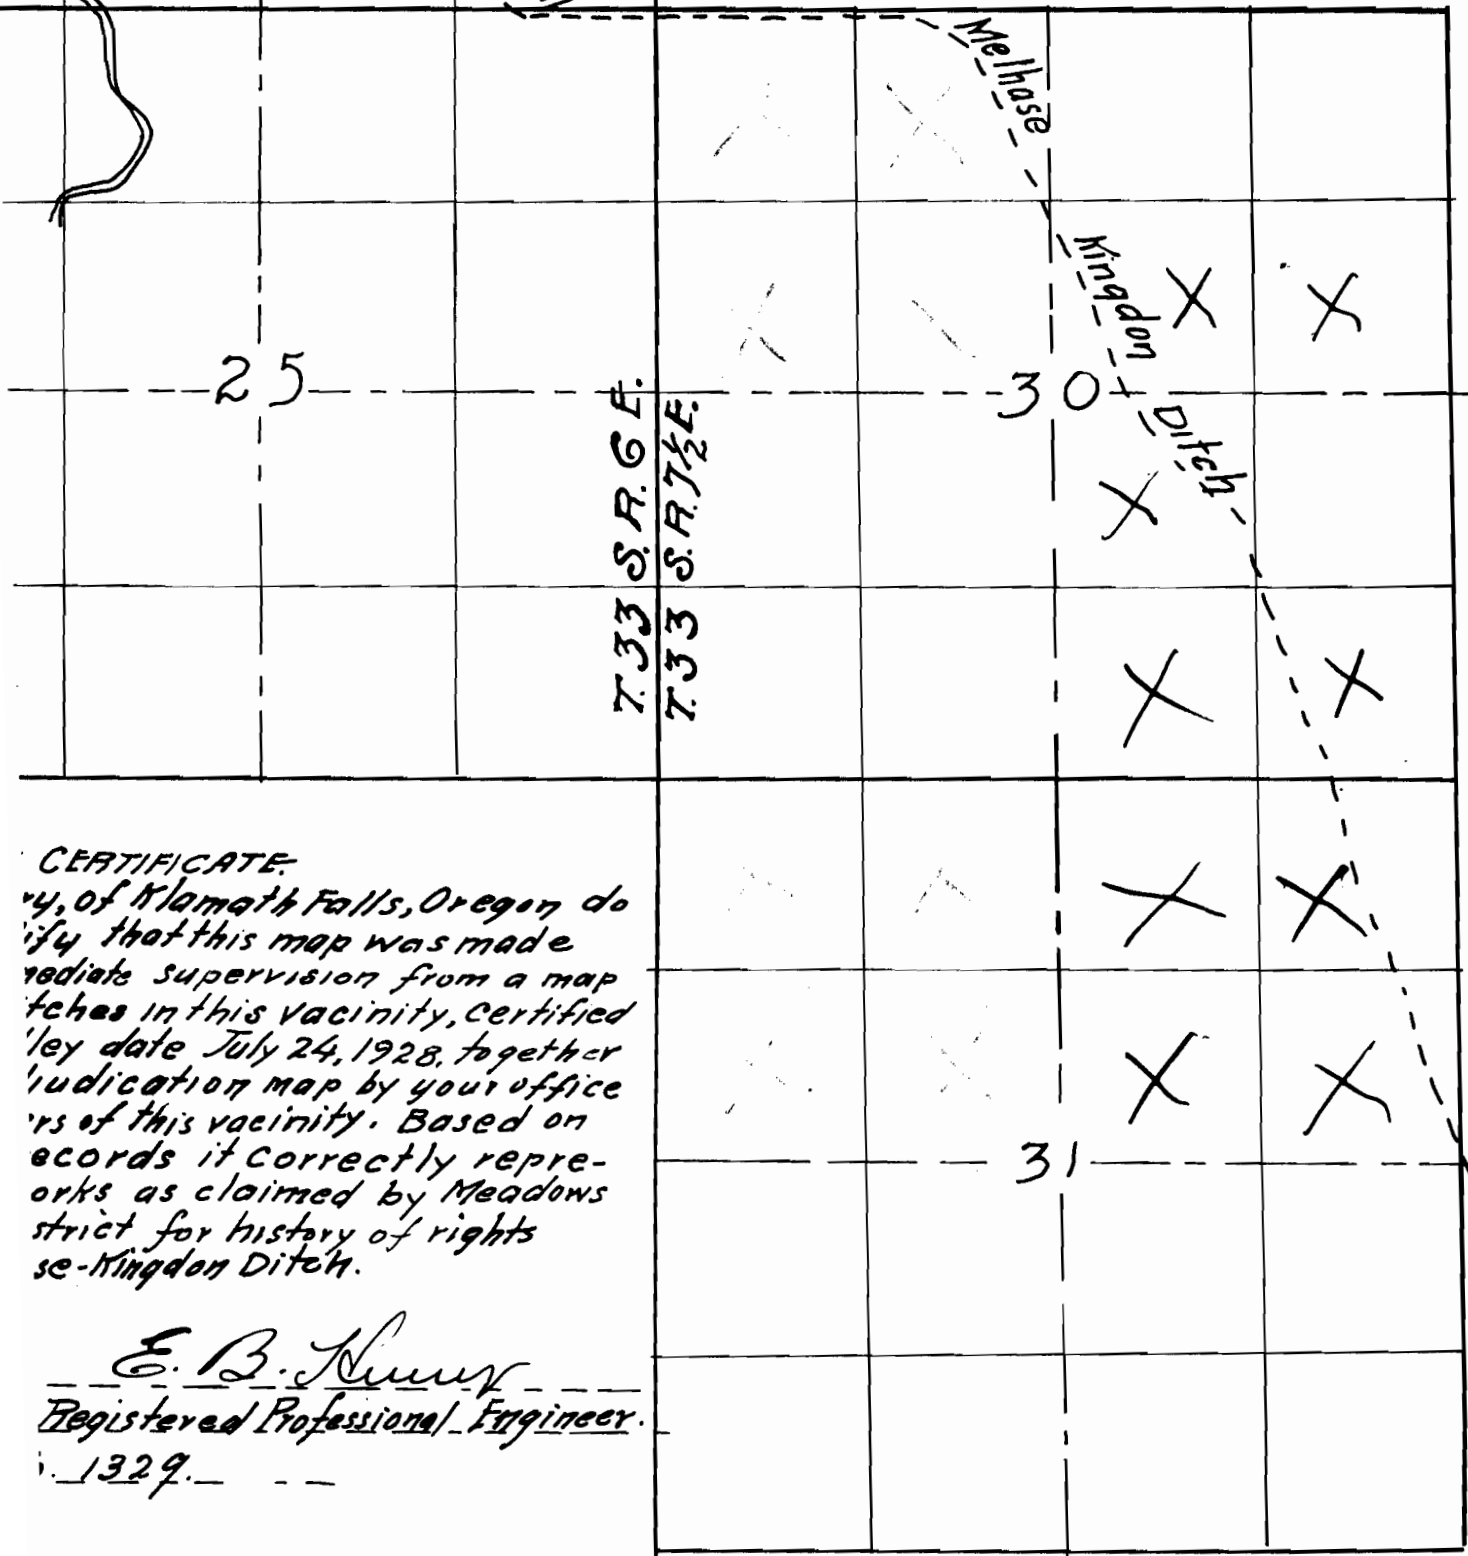 Melhase
Kingdon
Ditch
25
30
T. 33 S. R. 6 E.
T. 33 S. R. 7½ E.
31
CERTIFICATE.
ry, of Klamath Falls, Oregon do
ify that this map was made
mediate supervision from a map
tches in this vacinity, certified
ley date July 24, 1928, together
judication map by your office
rs of this vacinity. Based on
ecords it correctly repre-
orks as claimed by Meadows
strict for history of rights
se-Kingdon Ditch.
E. B.
Registered Professional Engineer.
1329.